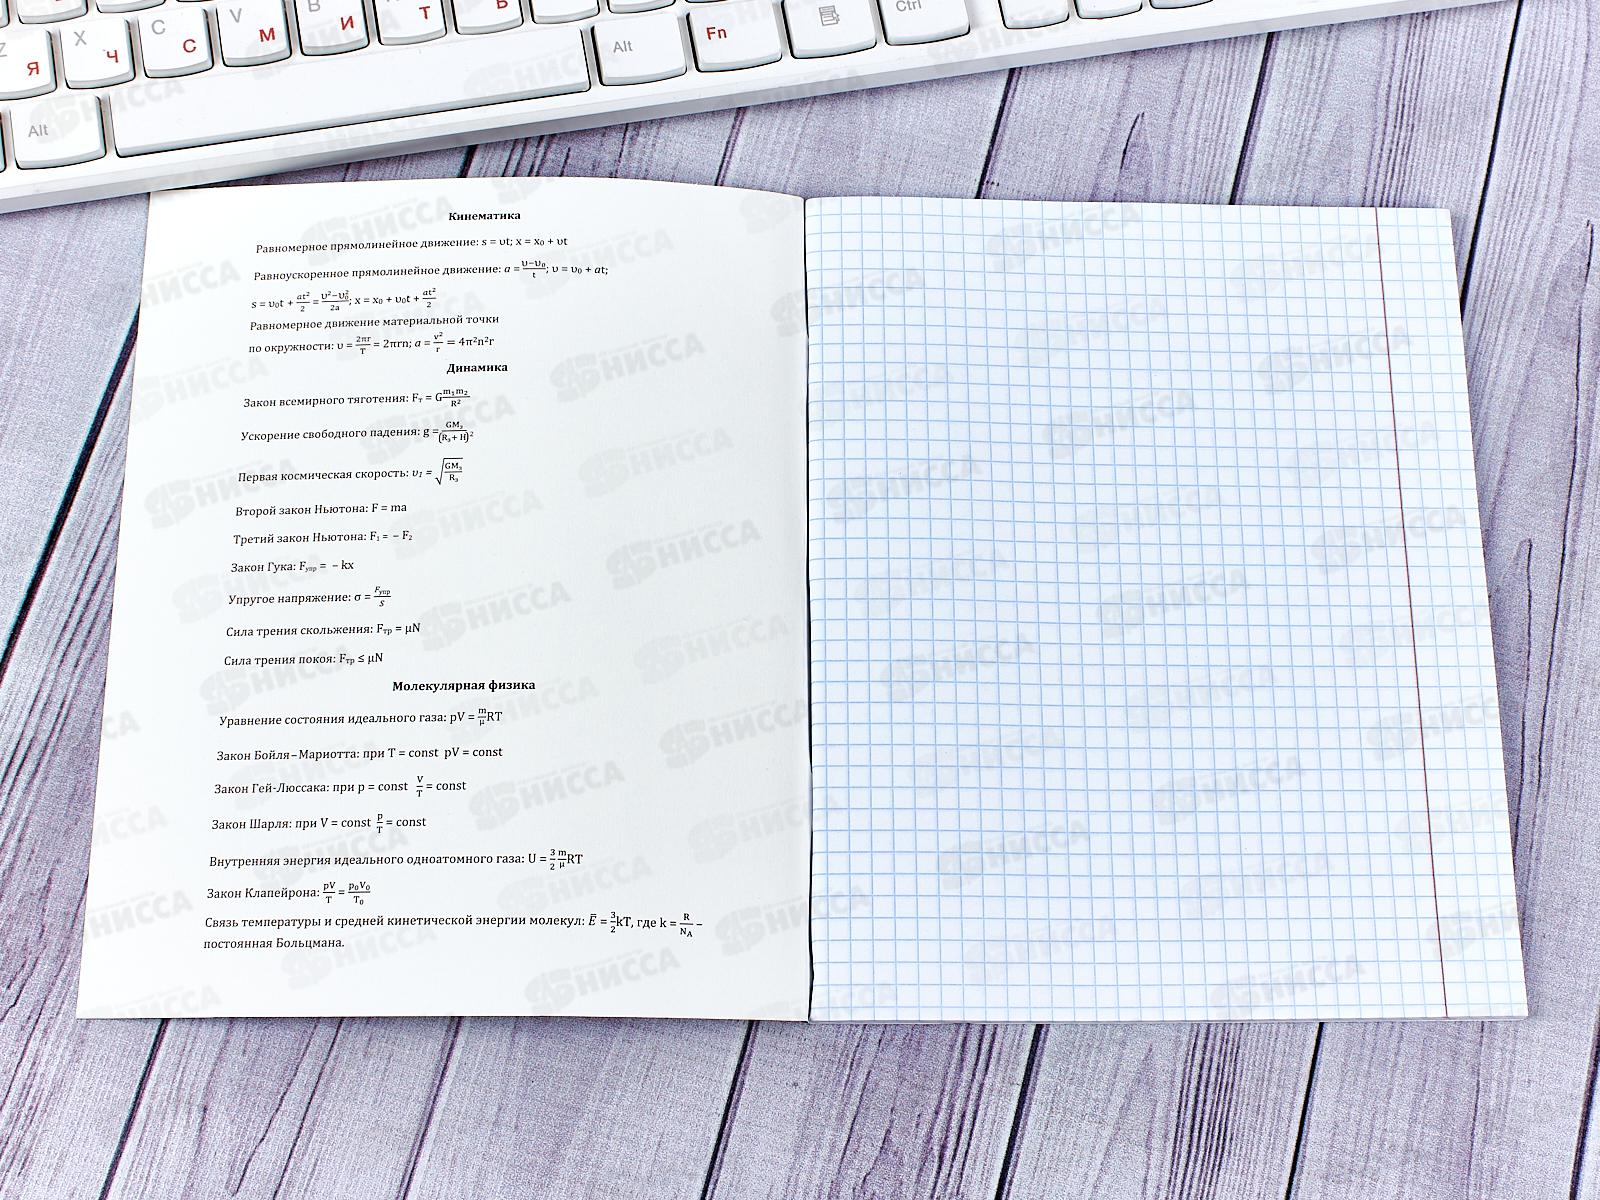 Z Я
X Ч
C С
V М
B И
Т
Ь
Alt
Fn
Ctrl
Alt
Кинематика
Равномерное прямолинейное движение: s = υt; x = x₀ + υt
Равноускоренное прямолинейное движение: a = (υ−υ₀)/t; υ = υ₀ + at;
s = υ₀t + at²/2 = (υ²−υ₀²)/2a; x = x₀ + υ₀t + at²/2
Равномерное движение материальной точки
по окружности: υ = 2πr/T = 2πrn; a = v²/r = 4π²n²r
Динамика
Закон всемирного тяготения: Fт = G m₁m₂/R²
Ускорение свободного падения: g = GMз/(Rз + H)²
Первая космическая скорость: υ₁ = √(GMз/Rз)
Второй закон Ньютона: F = ma
Третий закон Ньютона: F₁ = − F₂
Закон Гука: Fупр = − kx
Упругое напряжение: σ = Fупр/S
Сила трения скольжения: Fтр = μN
Сила трения покоя: Fтр ≤ μN
Молекулярная физика
Уравнение состояния идеального газа: pV = m/μ RT
Закон Бойля–Мариотта: при T = const pV = const
Закон Гей-Люссака: при p = const V/T = const
Закон Шарля: при V = const p/T = const
Внутренняя энергия идеального одноатомного газа: U = 3/2 m/μ RT
Закон Клапейрона: pV/T = p₀V₀/T₀
Связь температуры и средней кинетической энергии молекул: Ē = 3/2 kT, где k = R/N_A –
постоянная Больцмана.
НИССА